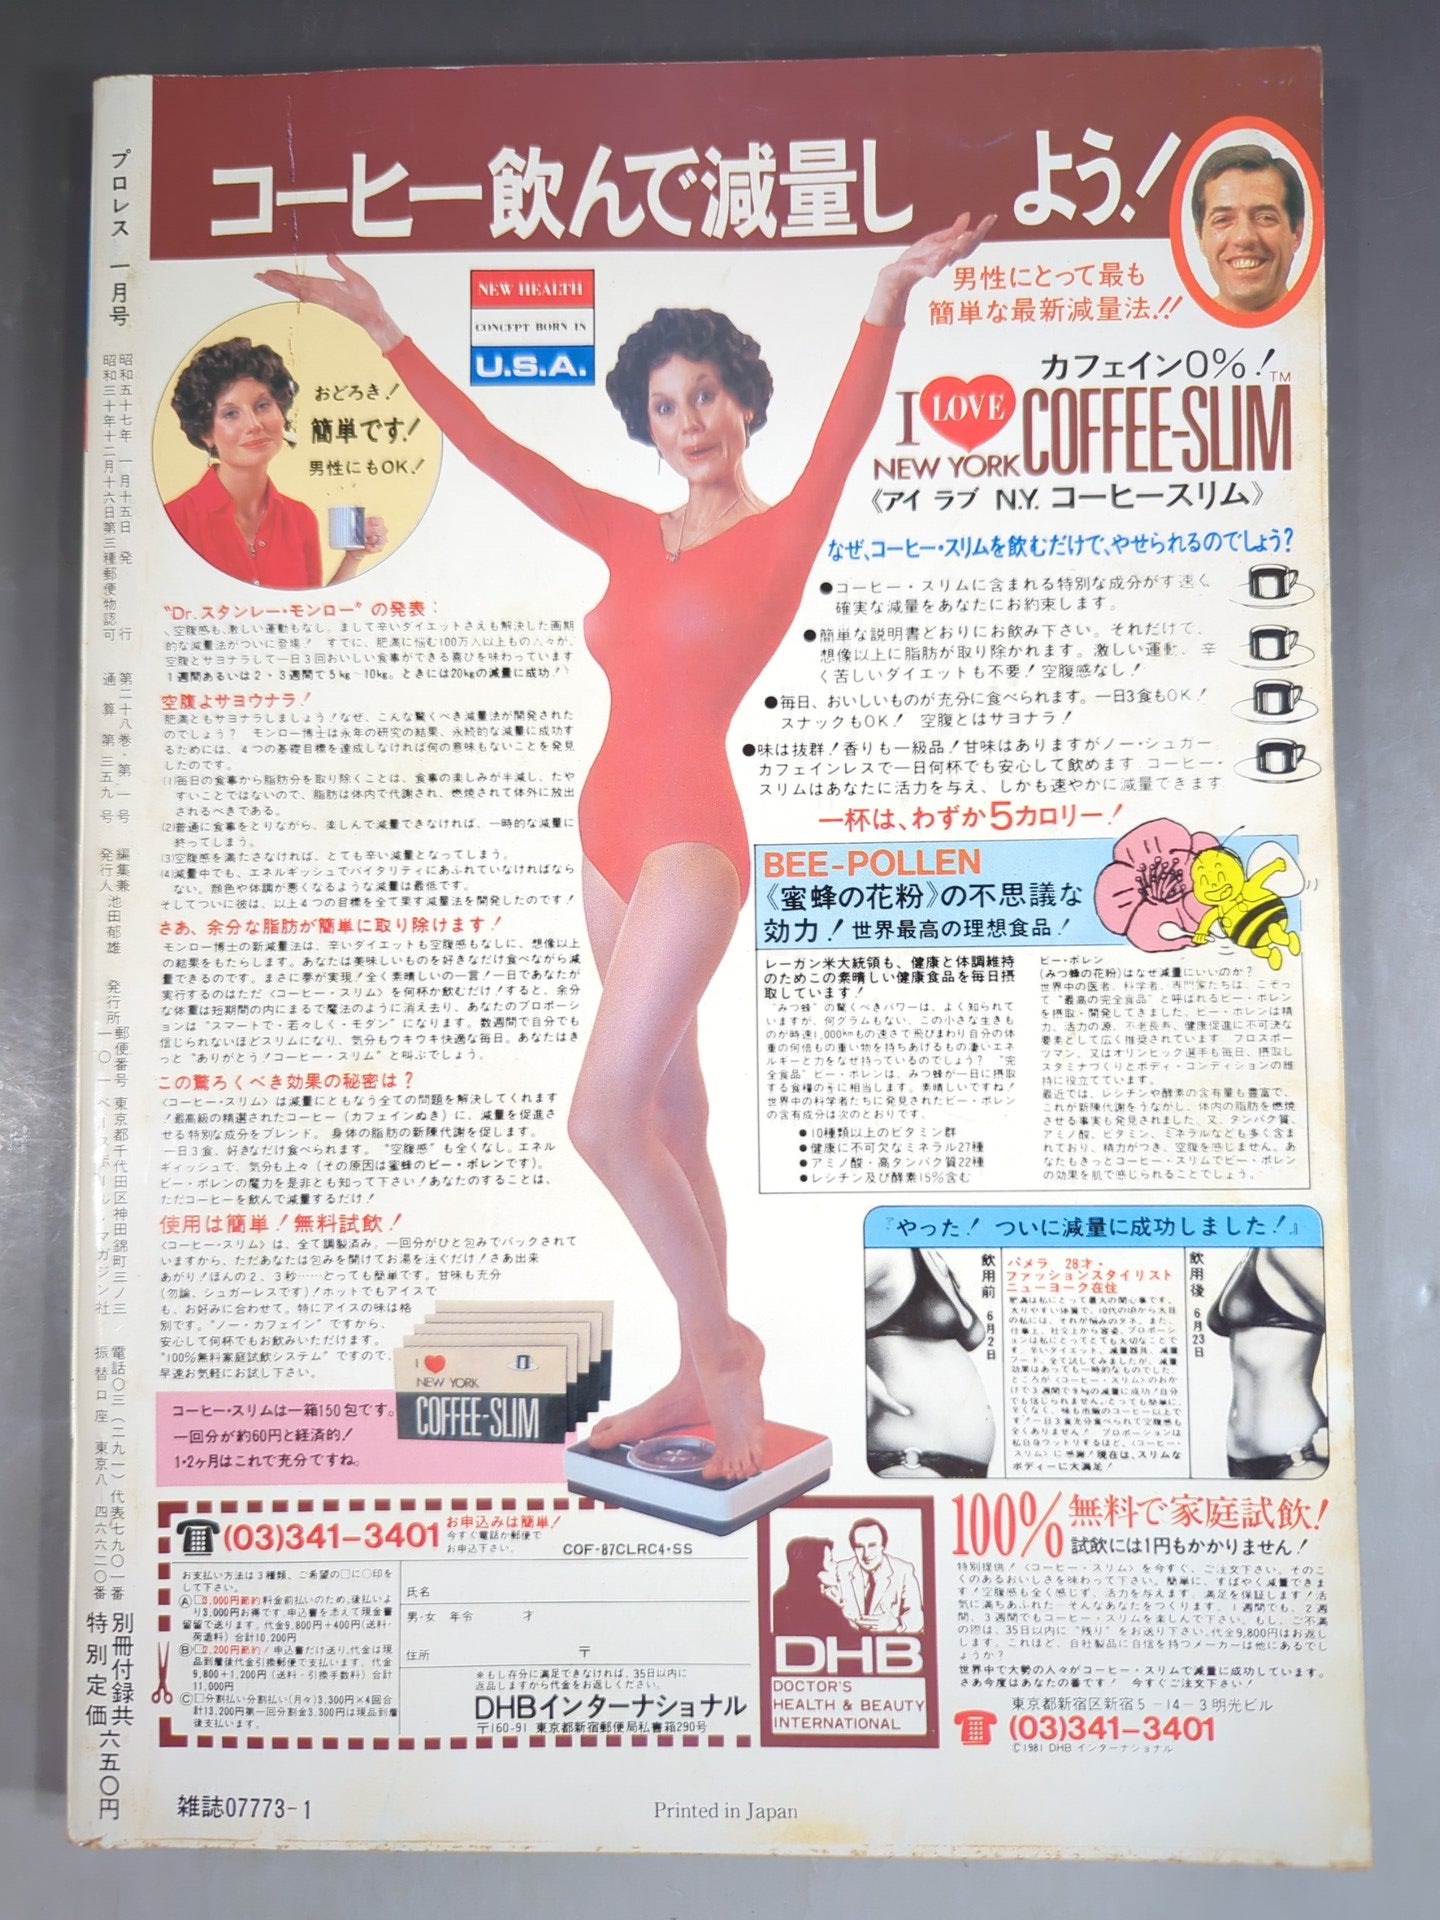 コーヒー飲んで減量しよう!
男性にとって最も
簡単な最新減量法!!
NEW HEALTH
CONCEPT BORN IN
U.S.A.
おどろき!
簡単です!
男性にもOK!
カフェイン0%!
I LOVE NEW YORK COFFEE-SLIM TM
《アイ ラブ N.Y. コーヒースリム》
なぜ、コーヒー・スリムを飲むだけで、やせられるのでしょう?
●コーヒー・スリムに含まれる特別な成分がす速く
確実な減量をあなたにお約束します。
●簡単な説明書どおりにお飲み下さい。それだけで、
想像以上に脂肪が取り除かれます。激しい運動、辛
く苦しいダイエットも不要!空腹感なし!
●毎日、おいしいものが充分に食べられます。一日3食もOK!
スナックもOK! 空腹とはサヨナラ!
●味は抜群!香りも一級品!甘味はありますがノー・シュガー
カフェインレスで一日何杯でも安心して飲めます コーヒー・
スリムはあなたに活力を与え、しかも速やかに減量できます
一杯は、わずか5カロリー!
"Dr.スタンレー・モンロー"の発表:
、空腹感も、激しい運動もなし。まして辛いダイエットさえも解決した画期
的な減量法がついに登場! すでに、肥満に悩む100万人以上もの人々が、
空腹とサヨナラして一日3回おいしい食事ができる喜びを味わっています
1週間あるいは2・3週間で5kg~10kg。ときには20kgの減量に成功!
空腹よサヨウナラ!
肥満ともサヨナラしましょう!なぜ、こんな驚くべき減量法が開発された
のでしょう? モンロー博士は永年の研究の結果、永続的な減量に成功す
るためには、4つの基礎目標を達成しなければ何の意味もないことを発見
したのです。
(1)毎日の食事から脂肪分を取り除くことは、食事の楽しみが半減し、たや
すいことではないので、脂肪は体内で代謝され、燃焼されて体外に放出
されるべきである。
(2)普通に食事をとりながら、楽しんで減量できなければ、一時的な減量に
終ってしまう。
(3)空腹感を満たさなければ、とても辛い減量となってしまう。
(4)減量中でも、エネルギッシュでバイタリティにあふれていなければなら
ない。顔色や体調が悪くなるような減量は最低です。
そしてついに彼は、以上4つの目標を全て果す減量法を開発したのです!
さあ、余分な脂肪が簡単に取り除けます!
モンロー博士の新減量法は、辛いダイエットも空腹感もなしに、想像以上
の結果をもたらします。あなたは美味しいものを好きなだけ食べながら減
量できるのです。まさに夢が実現!全く素晴しいの一言!一日であなたが
実行するのはただ〈コーヒー・スリム〉を何杯か飲むだけ!すると、余分
な体重は短期間の内にまるで魔法のように消え去り、あなたのプロポーシ
ョンは"スマートで・若々しく・モダン"になります。数週間で自分でも
信じられないほどスリムになり、気分もウキウキ快適な毎日。あなたはき
っと"ありがとう!コーヒー・スリム"と叫ぶでしょう。
この驚ろくべき効果の秘密は?
〈コーヒー・スリム〉は減量にともなう全ての問題を解決してくれます
!最高級の精選されたコーヒー(カフェインぬき)に、減量を促進さ
せる特別な成分をブレンド。身体の脂肪の新陳代謝を促します。
一日3食、好きなだけ食べられます。"空腹感"も全くなし。エネル
ギィッシュで、気分も上々(その原因は蜜蜂のビー・ポレンです)。
ビー・ポレンの魔力を是非とも知って下さい!あなたのすることは、
ただコーヒーを飲んで減量するだけ!
使用は簡単!無料試飲!
〈コーヒー・スリム〉は、全て調製済み。一回分がひと包みでパックされて
いますから、ただあなたは包みを開けてお湯を注ぐだけ!さあ出来
あがり!ほんの2、3秒……とっても簡単です。甘味も充分
(勿論、シュガーレスです)!ホットでもアイスで
も、お好みに合わせて。特にアイスの味は格
別です。"ノー・カフェイン"ですから、
安心して何杯でもお飲みいただけます。
"100%無料家庭試飲システム"ですので、
早速お気軽にお試し下さい。
I ♥
NEW YORK
COFFEE-SLIM
コーヒー・スリムは一箱150包です。
一回分が約60円と経済的!
1・2ヶ月はこれで充分ですね。
BEE-POLLEN
《蜜蜂の花粉》の不思議な
効力!世界最高の理想食品!
レーガン米大統領も、健康と体調維持
のためこの素晴しい健康食品を毎日摂
取しています!
"みつ蜂"の驚くべきパワーは、よく知られて
いますが、何グラムもない、この小さな生きも
のが時速1,000kmもの速さで飛びまわり自分の体
重の何倍もの重い物を持ちあげるもの凄いエネ
ルギーと力をなぜ持っているのでしょう? "完
全食品"ビー・ポレンは、みつ蜂が一日に摂取
する食糧の¾に相当します。素晴しいですね!
世界中の科学者たちに発見されたビー・ポレン
の含有成分は次のとおりです。
●10種類以上のビタミン群
●健康に不可欠なミネラル27種
●アミノ酸・高タンパク質22種
●レシチン及び酵素15%含む
ビー・ポレン
(みつ蜂の花粉)はなぜ減量にいいのか?
世界中の医者、科学者、専門家たちは、こぞっ
て"最高の完全食品"と呼ばれるビー・ポレン
を摂取・開発してきました。ビー・ポレンは精
力、活力の源、不老長寿、健康促進に不可決な
要素として広く推奨されています プロスポー
ツマン、又はオリンピック選手も毎日、摂取し
スタミナづくりとボディ・コンディションの維
持に役立てています。
最近では、レシチンや酵素の含有量も豊富で、
これが新陳代謝をうながし、体内の脂肪を燃焼
させる事実も発見されました。又、タンパク質、
アミノ酸、ビタミン、ミネラルなども多く含ま
れており、精力がつき、空腹を感じません。あ
なたもきっとコーヒー・スリムでビー・ポレン
の効果を肌で感じられることでしょう。
『やった! ついに減量に成功しました!』
飲用前 6月2日
パメラ 28才・
ファッションスタイリスト
ニューヨーク在住
飲用後 6月23日
(03)341-3401
お申込みは簡単!
今すぐ電話か郵便で
お申込下さい。
COF-87CLRC4・SS
お支払い方法は3種類、ご希望の□に○印を
して下さい。
Ⓐ□3,000円節約 料金前払いのため、後払いよ
り3,000円お得です。申込書を添えて現金書
留で送ります。代金9,800円+400円(送料・
荷造料)合計10,200円
Ⓑ□2,200円節約!申込書だけ送り、代金は現
品到着後代金引換郵便で支払います。代金
9,800+1,200円(送料・引換手数料)合計
11,000円
Ⓒ□分割払い分割払い(月々)3,300円×4回合
計13,200円第一回分割金3,300円は現品到着
後支払います。
氏名
男・女 年令 才
住所 〒
※もし存分に満足できなければ、35日以内に
返品しますから代金をお返しください。
DHBインターナショナル
〒160-91 東京都新宿郵便局私書箱290号
DHB
DOCTOR'S
HEALTH & BEAUTY
INTERNATIONAL
100%無料で家庭試飲!
試飲には1円もかかりません!
特別提供!〈コーヒー・スリム〉を今すぐ、ご注文下さい。そのこ
くのあるおいしさを味わって下さい。簡単に、すばやく減量できま
す!空腹感も全く感じず、活力を与えます。満足を保証します!活
気に満ちあふれた一そんなあなたをつくります。1週間でも、2週
間、3週間でもコーヒー・スリムを楽しんで下さい。もし、ご不満
の際は、35日以内に"残り"をお送り下さい。代金9,800円はお返し
します。これほど、自社製品に自信を持つメーカーは他にあるでし
ょうか?
世界中で大勢の人々がコーヒー・スリムで減量に成功しています。
さあ今度はあなたの番です! 今すぐご注文下さい!
東京都新宿区新宿5-14-3明光ビル
(03)341-3401
©1981 DHB インターナショナル
雑誌07773-1
Printed in Japan
プロレス 一月号
昭和五十七年一月十五日発行 第二十八巻・第一号
昭和三十年十二月十六日第三種郵便物認可 通算第三五九号
編集兼発行人 池田郁雄
発行所 郵便番号一〇一 東京都千代田区神田錦町三ノ三 ベースボール・マガジン社
電話〇三(二九一)代表七九〇一番
振替口座 東京八―四六六二〇番
別冊付録共
特別定価六五〇円